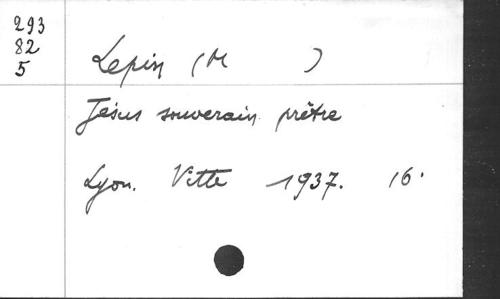 293
82
5
Lepin (M )
Jésus souverain prêtre
Lyon. Vitte 1937. 16.